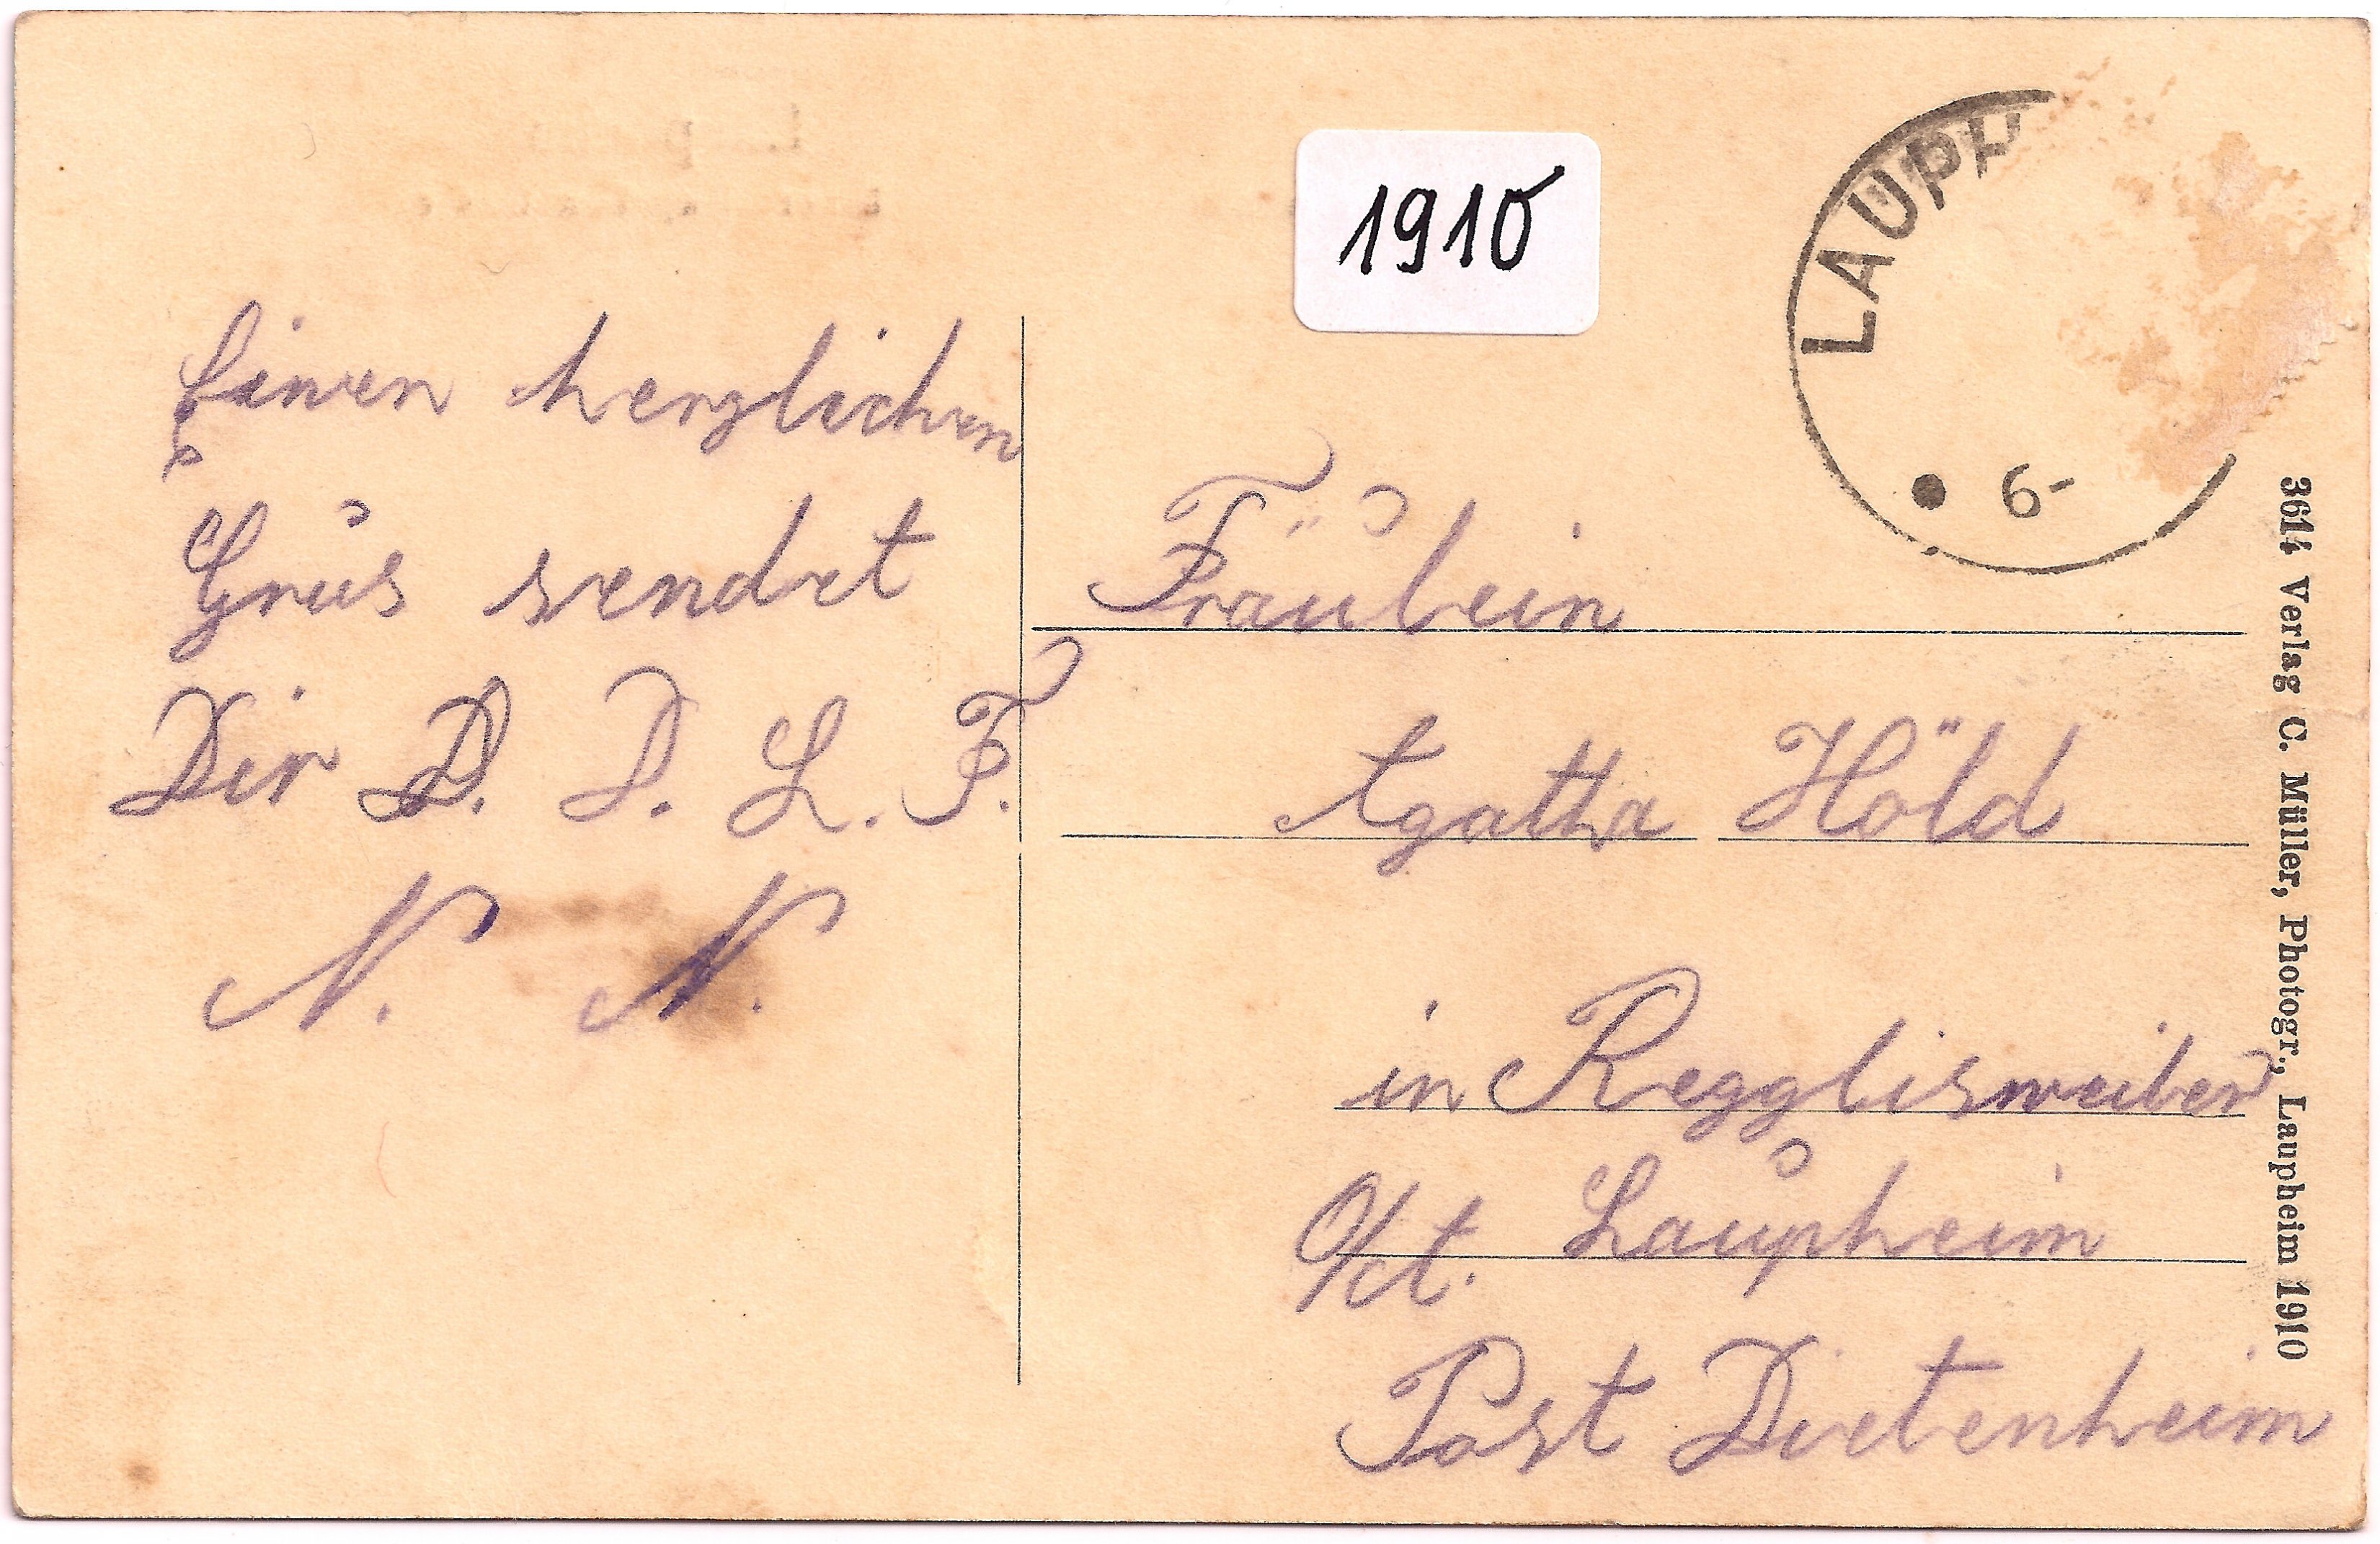 1910
LAUPH
6-
Einen herzlichen
Grus sendet
Dir D. D. L. F.
N. N.
Fräulein
Agatha Höld
in Regglisweiler
O/A t. Laupheim
Post Dietenheim
3614 Verlag C. Müller, Photogr., Laupheim 1910